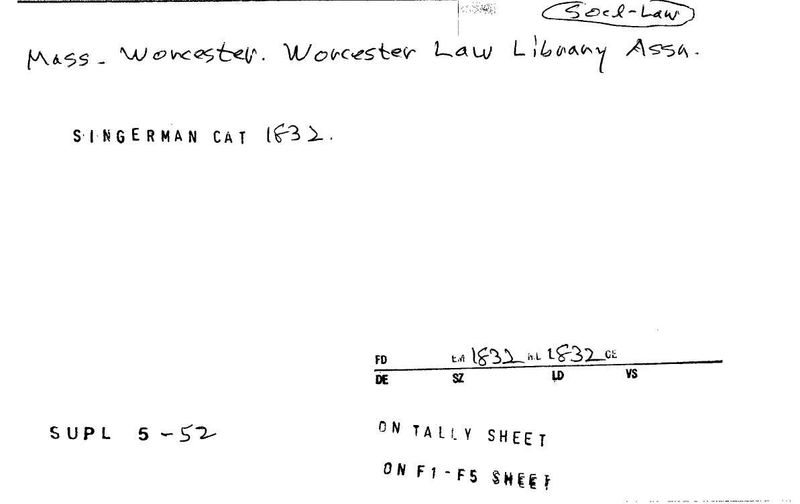 Socl-Law
Mass- Worcester. Worcester Law Library Assn.
SINGERMAN CAT 1832.
FD 1832 1832 CE
DE SZ LD VS
SUPL 5-52
ON TALLY SHEET
ON F1-F5 SHEET